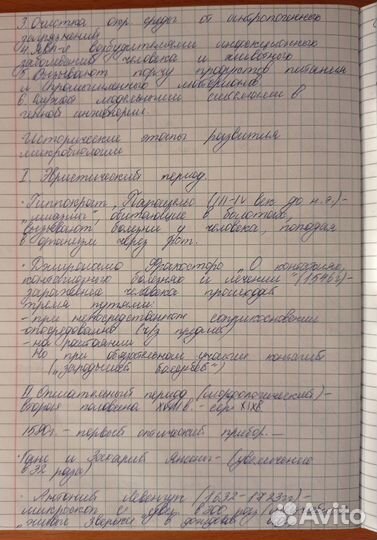 3. Очистка окр. среды от антропогенного
загрязнения
4. Явл-е возбудителями инфекционного
заболевания человека и животного
5. Вызывают порчу продуктов питания
и промышленного материалов.
6. Служат модельными системами в
генной инженерии.
Исторические этапы развития
микробиологии
I. Эвристический период.
· Гиппократ, Парацельс (III-IV век до н.э.) -
"миазмы", обитающие в болотах,
вызывают болезни у человека, попадая
в организм через рот.
· Джироламо Фракасторо "О контагии,
контагиозных болезнях и лечении" (1546г) -
заражение человека происходит
тремя путями:
- при непосредственном соприкосновении
- опосредованно (ч/з предмет)
- на расстоянии
Но при обязательном участии контагий
("зародышей болезней")
II Описательный период (морфологический) -
вторая половина XVII в. - сер. XIX в
1590г. - первый оптический прибор. -
Ганс и Захарий Янсен - (увеличение
в 32 раза)
· Антоний Левенгук (1632-1723гг) -
микроскоп с увел. в 300 раз
"живые зверьки" в
Avito